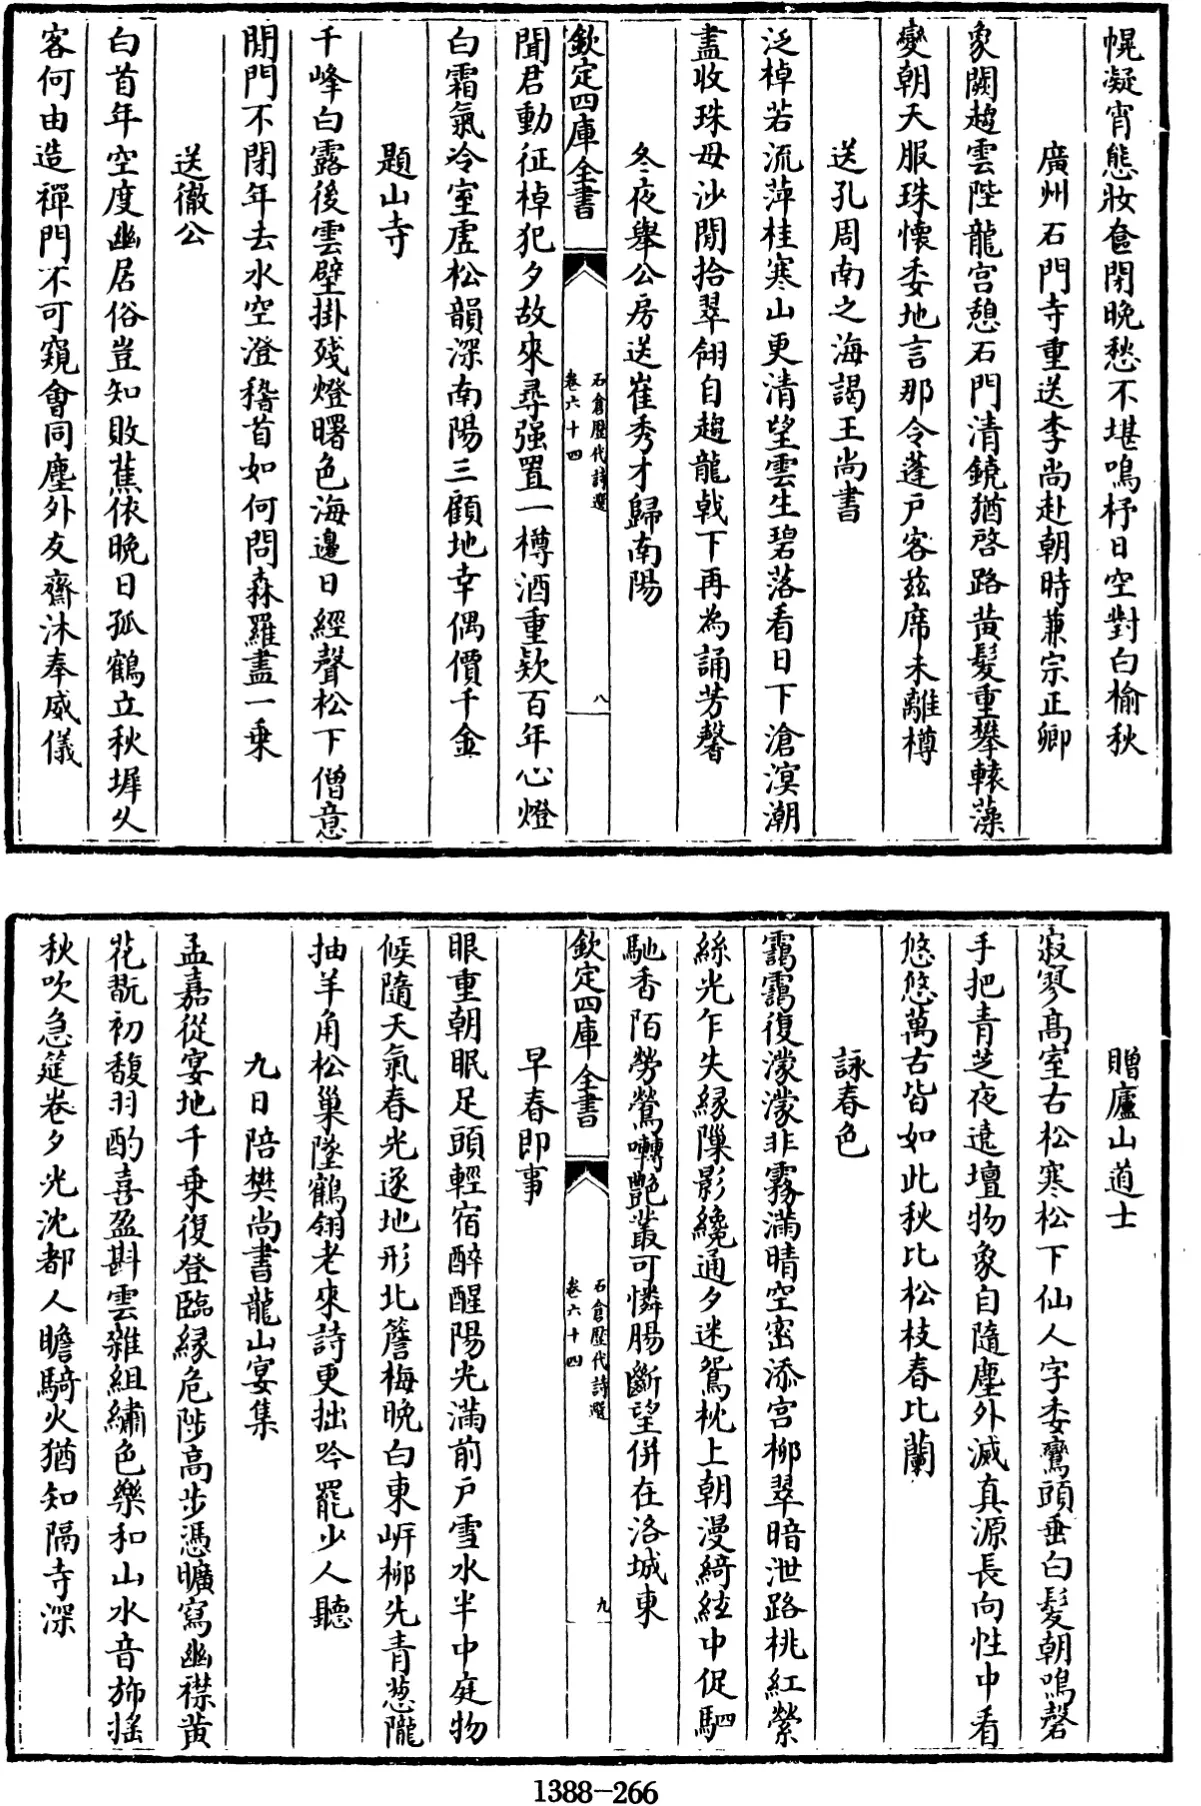 幌凝宵態妝奩閉晩愁不堪鳴杼日空對白榆秋
廣州石門寺重送李尚赴朝時兼宗正卿
象闕趨雲陛龍宫憩石門清鐃猶啓路黄髪重攀轅藻
變朝天服珠懐委地言那令蓬戸客兹席未離樽
送孔周南之海謁王尚書
泛棹若流萍桂寒山更清望雲生碧落看日下滄溟潮
盡收珠母沙閒拾翠翎自趨龍戟下再為誦芳馨
冬夜舉公房送崔秀才歸南陽
欽定四庫全書
石倉歴代詩選
卷六十四
八
聞君動征棹犯夕故來尋强置一樽酒重欵百年心燈
白霜氣冷室虚松韻深南陽三顧地幸偶價千金
題山寺
千峰白露後雲壁掛殘燈曙色海邊日經聲松下僧意
閒門不閉年去水空澄稽首如何問森羅盡一乗
送徹公
白首年空度幽居俗豈知敗蕉依晩日孤鶴立秋墀久
客何由造禪門不可窺會同塵外友齋沐奉威儀
贈廬山道士
寂寥髙室古松寒松下仙人字委鸞頭垂白髪朝鳴磬
手把青芝夜遶壇物象自隨塵外滅真源長向性中看
悠悠萬古皆如此秋比松枝春比蘭
詠春色
靄靄復濛濛非霧滿晴空密添宫柳翠暗泄路桃紅縈
絲光乍失緣隟影纔通夕迷鴛枕上朝漫綺絃中促駟
馳香陌勞鶯囀艶叢可憐腸斷望併在洛城東
欽定四庫全書
石倉歴代詩選
卷六十四
九
早春即事
眼重朝眠足頭輕宿醉醒陽光滿前戸雪水半中庭物
候隨天氣春光逐地形北簷梅晩白東岍柳先青葱隴
抽羊角松巢墜鶴翎老來詩更拙吟罷少人聽
九日陪樊尚書龍山宴集
孟嘉從宴地千乗復登臨緣危陟高步憑曠寫幽襟黄
花翫初馥羽酌喜盈斟雲雜組繡色樂和山水音斾摇
秋吹急筵卷夕光沈都人瞻騎火猶知隔寺深
1388-266